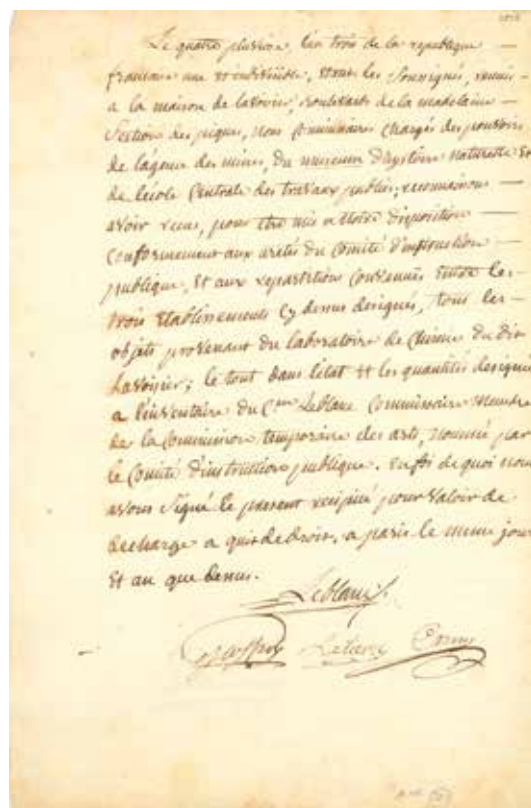 Le quatre pluviose l'an trois de la republique —
francaise une et indivisible, etant les Sousignés, reunis
a la maison de lavoisier, boulevart de la madelaine —
Section des piques, nous Commissaires chargés des pouvoirs
de l'agence des mines, du museum d'hystoire naturelle et
de l'école Centrale des travaux publics, reconnoissons —
avoir recus, pour etre mis a Notre disposition —
Conformement aux aretés du Comité d'instruction —
publique, Et aux repartitions Convenues Entre les
trois Etablissements Cy dessus designés, tous les
objets provenant du laboratoire de Chimie du dit
Lavoisier; le tout dans l'état et les quantités designés
a l'inventaire du Cen Leblanc Commissaire Membre
de la Commission temporaire des arts, nommé par
le Comité d'instruction publique. En foi de quoi nous
avons Signé le present recipicé pour Valoir de
decharge a qui de droit, a paris le meme jour
Et an que dessus.
Leblanc